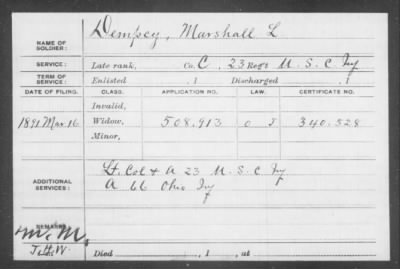 NAME OF SOLDIER: Dempsey, Marshall L.
SERVICE: Late rank, Co. C, 23 Reg't U. S. C Inf
TERM OF SERVICE: Enlisted , 1 Discharged , 1
DATE OF FILING. CLASS. APPLICATION NO. LAW. CERTIFICATE NO.
Invalid,
1891 Mar 16 Widow, 508.913 340.528
Minor,
ADDITIONAL SERVICES: Lt. Col & A 23 U. S. C Inf
A 66 Ohio Inf
REMARKS:
Died , 1 , at